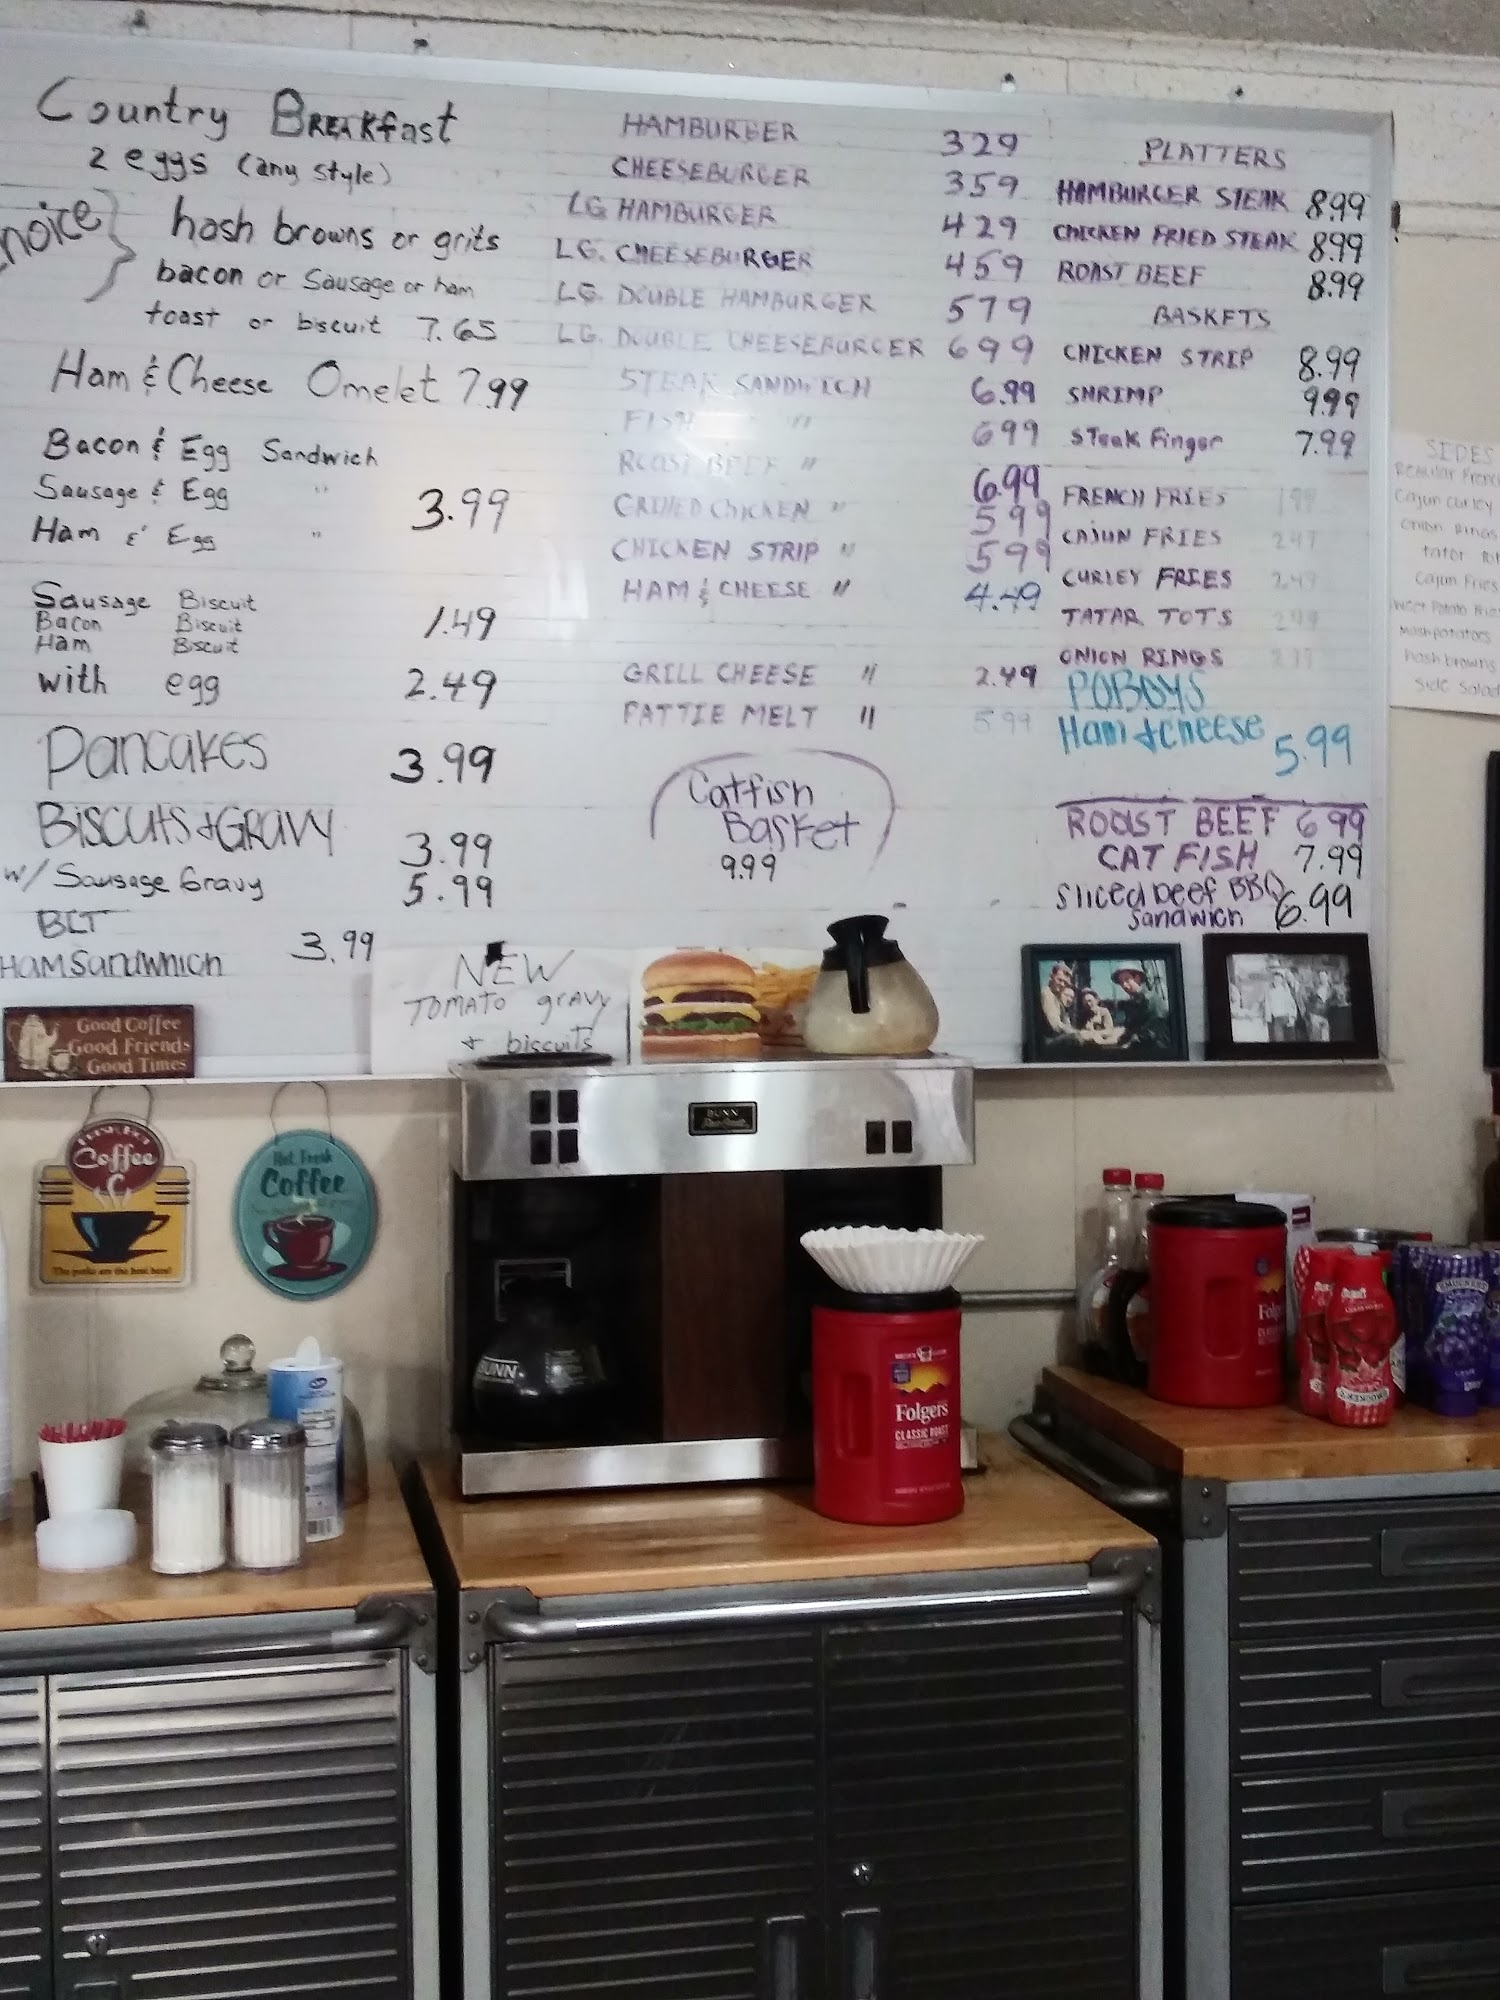 Country BREAKfast
2 eggs (any style)
hash browns or grits
bacon or Sausage or ham
toast or biscuit 7.65
Ham & Cheese Omelet 7.99
Bacon & Egg Sandwich
Sausage & Egg "
Ham & Egg "
3.99
Sausage Biscuit
Bacon Biscuit
Ham Biscuit
1.49
with egg 2.49
Pancakes 3.99
BiscuitS & GRAVY 3.99
w/ Sausage Gravy 5.99
BLT
HAMSandwhich 3.99
HAMBURGER 329
CHEESEBURGER 359
LG HAMBURGER 429
LG. CHEESEBURGER 459
LG. DOUBLE HAMBURGER 579
LG. DOUBLE CHEESEBURGER 699
STEAK SANDWICH 6.99
FISH " 699
ROAST BEEF " 6.99
GRILLED CHICKEN " 599
CHICKEN STRIP " 599
HAM & CHEESE " 4.49
GRILL CHEESE " 2.49
PATTIE MELT " 5.99
Catfish
Basket
9.99
PLATTERS
HAMBURGER STEAK 8.99
CHICKEN FRIED STEAK 8.99
ROAST BEEF 8.99
BASKETS
CHICKEN STRIP 8.99
SHRIMP 9.99
Steak Finger 7.99
FRENCH FRIES
CAJUN FRIES
CURLEY FRIES
TATAR TOTS
ONION RINGS
POBOYS
Ham & cheese 5.99
ROAST BEEF 6.99
CAT FISH 7.99
Sliced beef BBQ
Sandwich 6.99
SIDES
Cajun Curley
Onion Rings
Cajun Fries
Mashpotators
hash browns
Side Salad
NEW
TOMATO gravy
& biscuits
Good Coffee
Good Friends
Good Times
Coffee
Hot Fresh
Coffee
BUNN
BUNN
Folgers
CLASSIC ROAST
SMUCKER'S